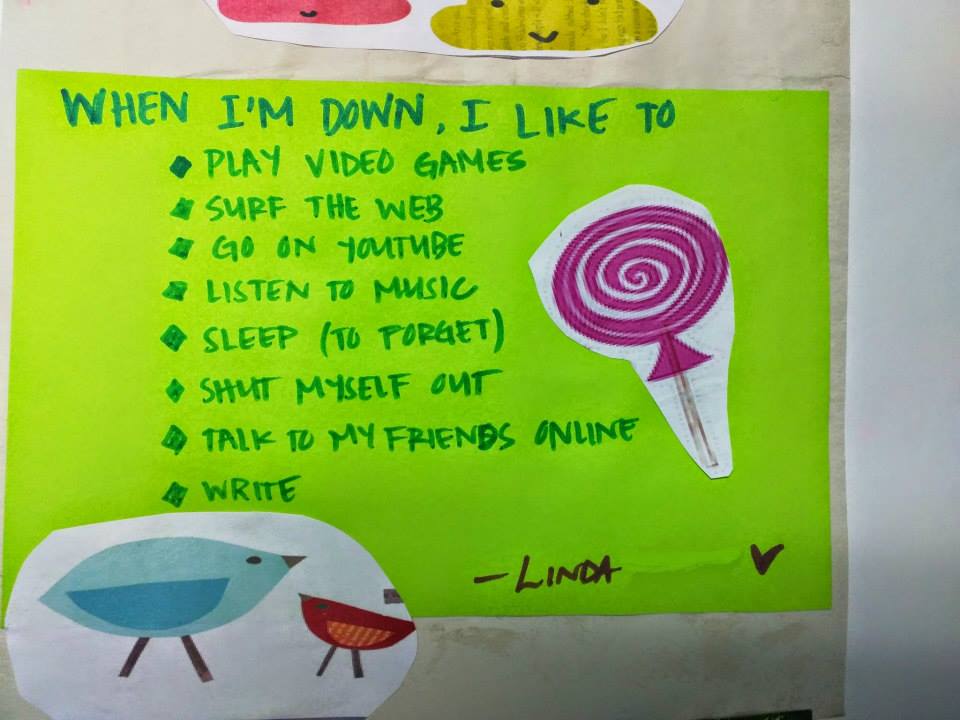 WHEN I'M DOWN, I LIKE TO
◆ PLAY VIDEO GAMES
◆ SURF THE WEB
◆ GO ON YOUTUBE
◆ LISTEN TO MUSIC
◆ SLEEP (TO FORGET)
◆ SHUT MYSELF OUT
◆ TALK TO MY FRIENDS ONLINE
◆ WRITE
— LINDA ♥